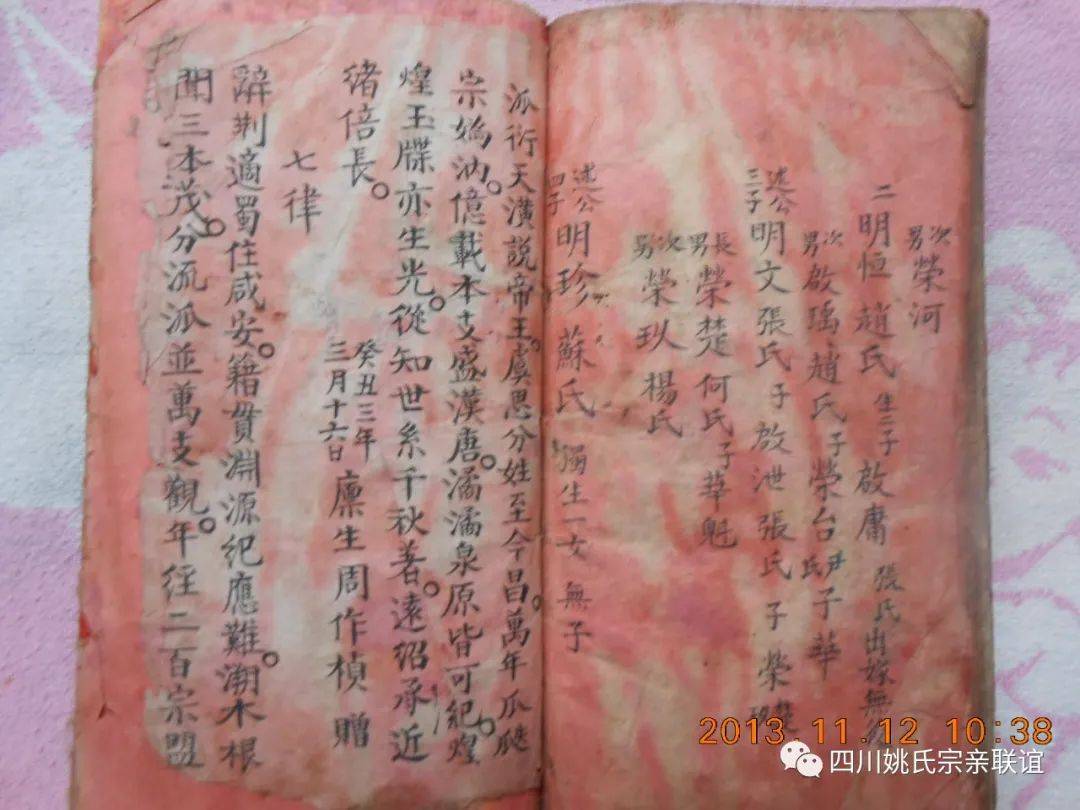 次男 榮河
二 明恒 趙氏 生二子 啟庸 張氏出嫁無
次男 啟瑤 趙氏 子榮台 尹氏 子華
述公三子 明文 張氏 子 啟泄 張氏 子 榮楚
長男 榮楚 何氏 子華魁
次男 榮玖 楊氏
述公四子 明珍 蘇氏 獨生一女 無子
派衍天潢說帝王。虞思分姓至今昌。萬年瓜瓞
宗媯汭。億載本支盛漢唐。潏潏泉原皆可紀。煌
煌玉牒亦生光。從知世系千秋著。遠紹承近
緒倍長。
癸丑三年
三月十六日 廩生周作楨贈
七律
辭荆適蜀住咸安。籍貫淵源紀應難。溯木根
聞三本茂。分流派並萬支觀。年徑二百宗盟
2013.11.12 10:38
四川姚氏宗亲联谊